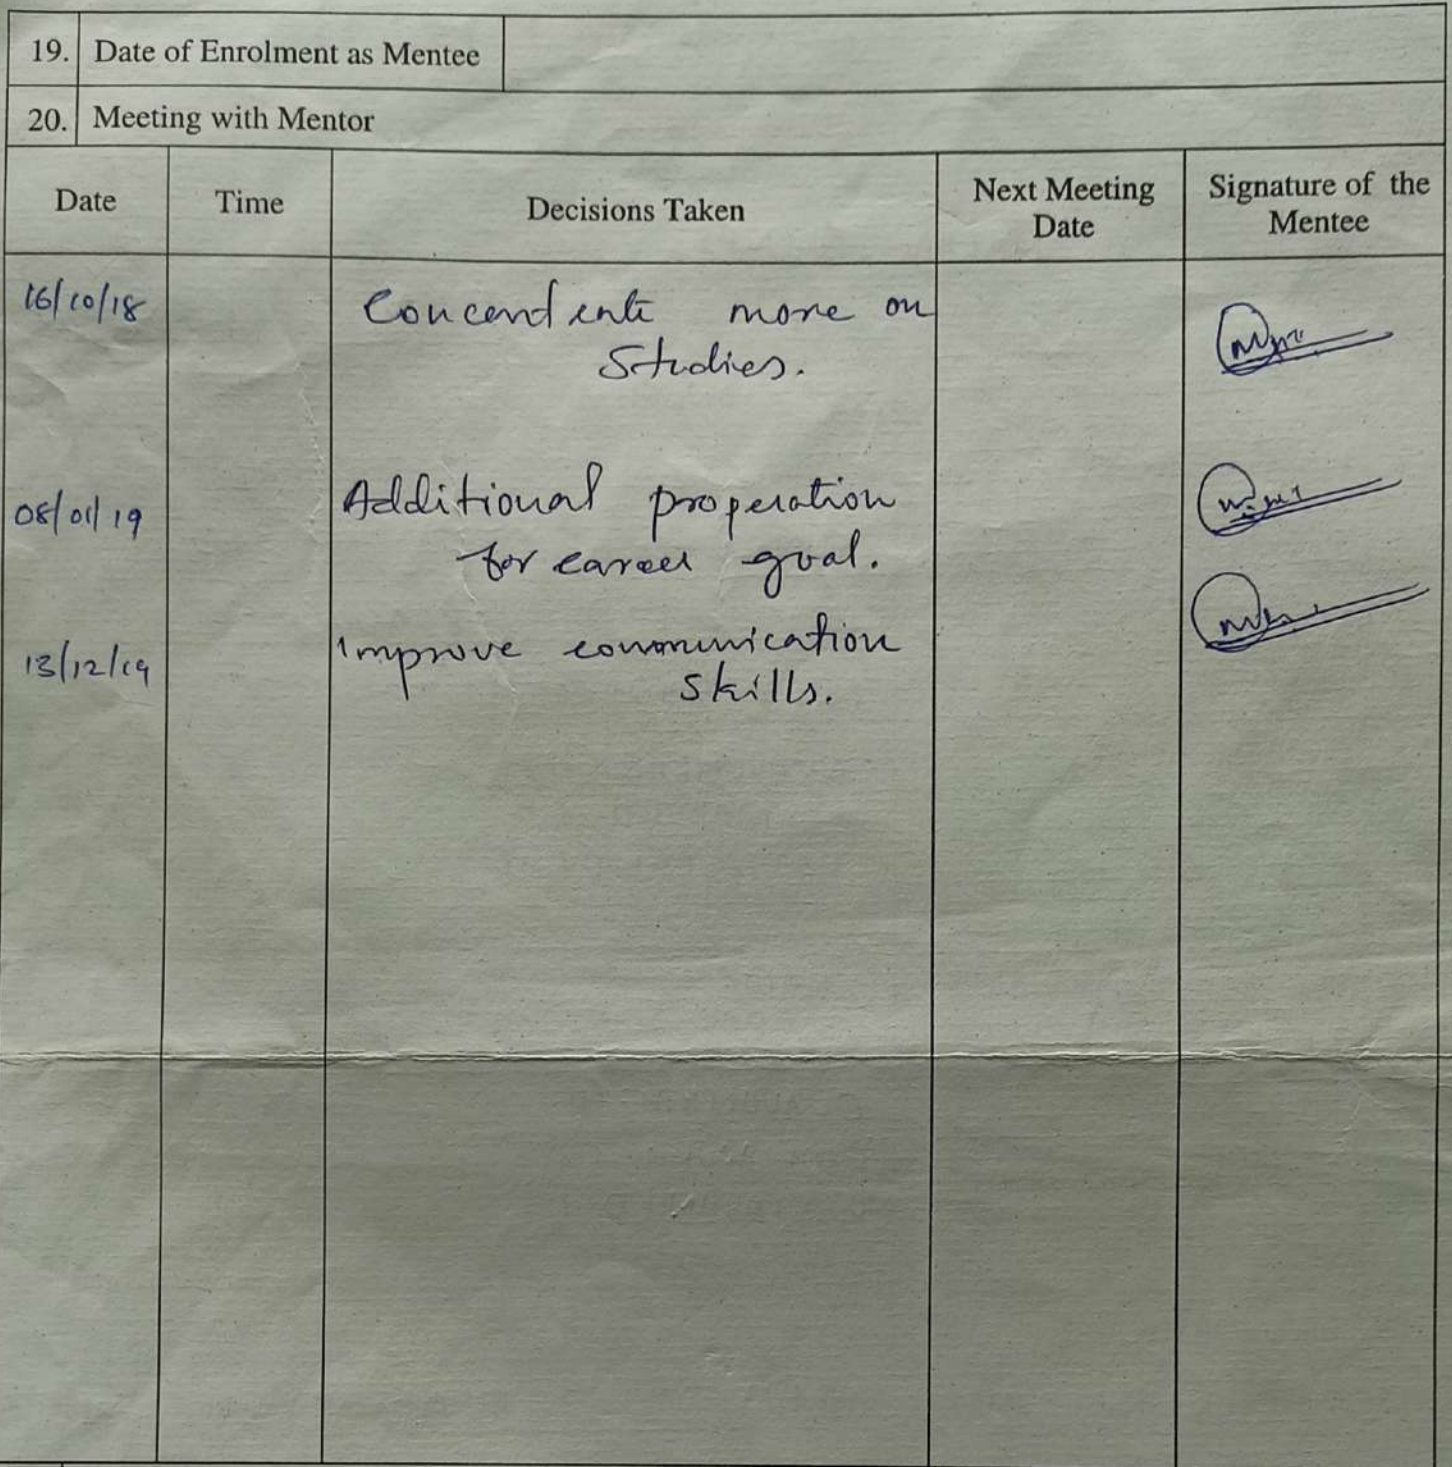 19. Date of Enrolment as Mentee
20. Meeting with Mentor
Date Time Decisions Taken Next Meeting Date Signature of the Mentee
16/10/18 more on
Studies.
08/01/19 Additional properation
for career goal.
13/12/19 Improve communication
Skills.